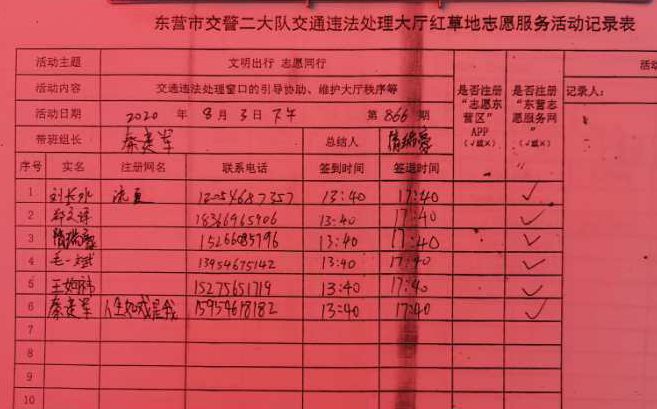 东营市交警二大队交通违法处理大厅红草地志愿服务活动记录表
活动主题 文明出行 志愿同行 活动
活动内容 交通违法处理窗口的引导协助、维护大厅秩序等 是否注册“志愿东营区”APP（√或×） 是否注册“东营志愿服务网”（√或×） 记录人：
活动日期 2020 年 8 月 3 日 下午 第 866 期
带班组长 秦建军 总结人
序号 实名 注册网名 联系电话 签到时间 签退时间
1 刘长水 13:40 17:40 √
2 18366965906 13:40 17:40 √
3 15266085796 13:40 17:40 √
4 毛一斌 13954675142 13:40 17:40 √
5 15275651719 13:40 17:40 √
6 秦建军 人生如戏是我 15954618182 13:40 17:40 √
7
8
9
10